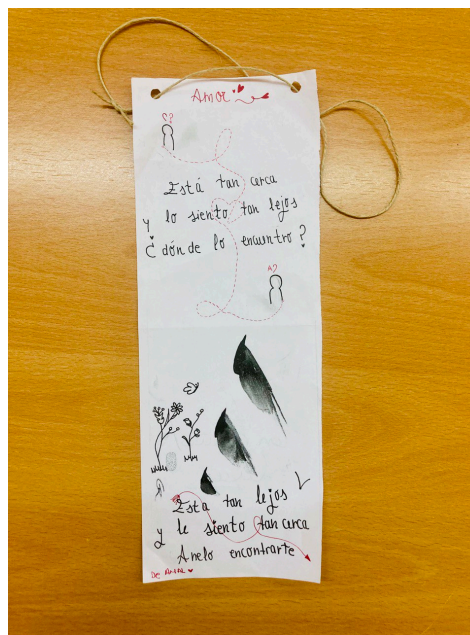 Amor
Está tan cerca
y lo siento tan lejos
¿dónde lo encuentro?
Esta tan lejos
y le siento tan cerca
Anelo encontrarte